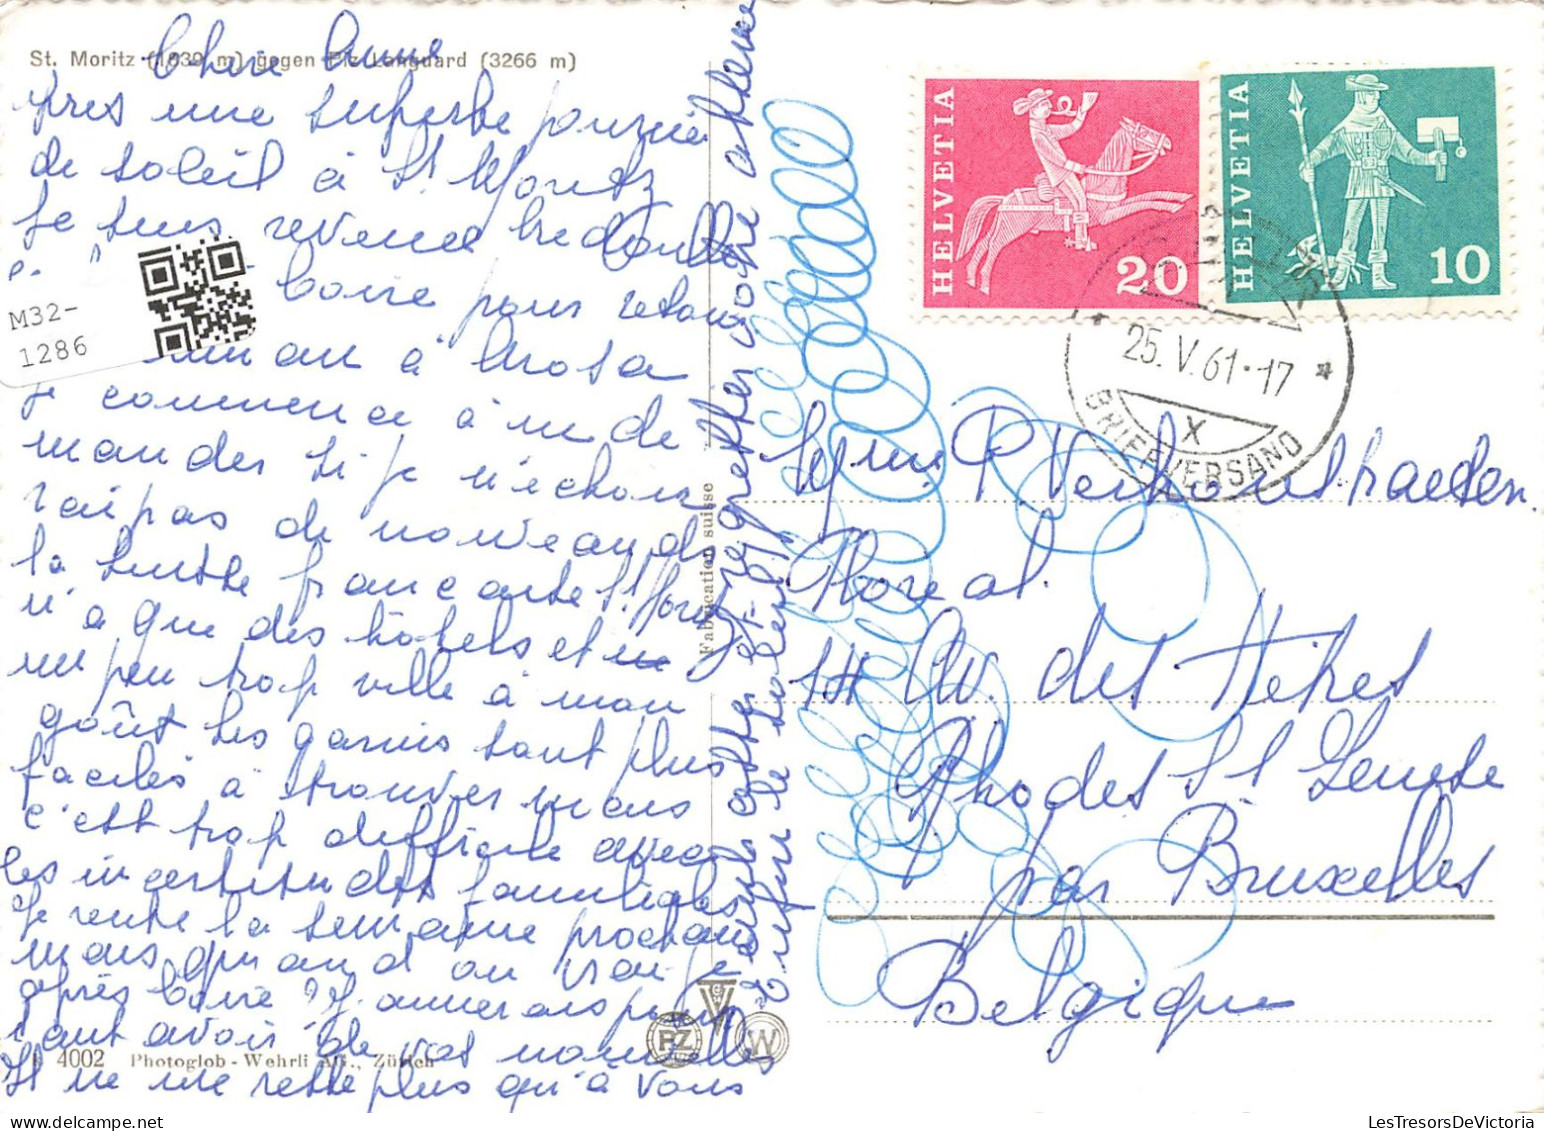 St. Moritz (1839 m) gegen Piz Languard (3266 m)
Chère Anne
près une superbe journée
de soleil à St Moritz
je suis revenue
boire pour retour
à Arosa
je commence à me de
mander si je n'échoue
rai pas de nouveau ds
la suisse française St. Moritz
n'a que des hôtels et
un peu trop ville à mon
goût les garnis sont plus
faciles à trouver mais
c'est trop difficile avec
les incertitudes familiales
Je rentre la semaine prochaine
mais quand on
après Coire ? J'aimerais
tant avoir de vos nouvelles
Il ne me reste plus qu'à vous
regretter votre absence
le soleil
M32-
1286
4002 Photoglob-Wehrli AG., Zürich
Fabrication suisse
PZ
W
HELVETIA
20
HELVETIA
10
25.V.61-17
X
BRIEFVERSAND
Mme P Verhoustraeten
Floreal
14 Av. des Hêtres
Rhodes St Genèse
par Bruxelles
Belgique
LesTresorsDeVictoria